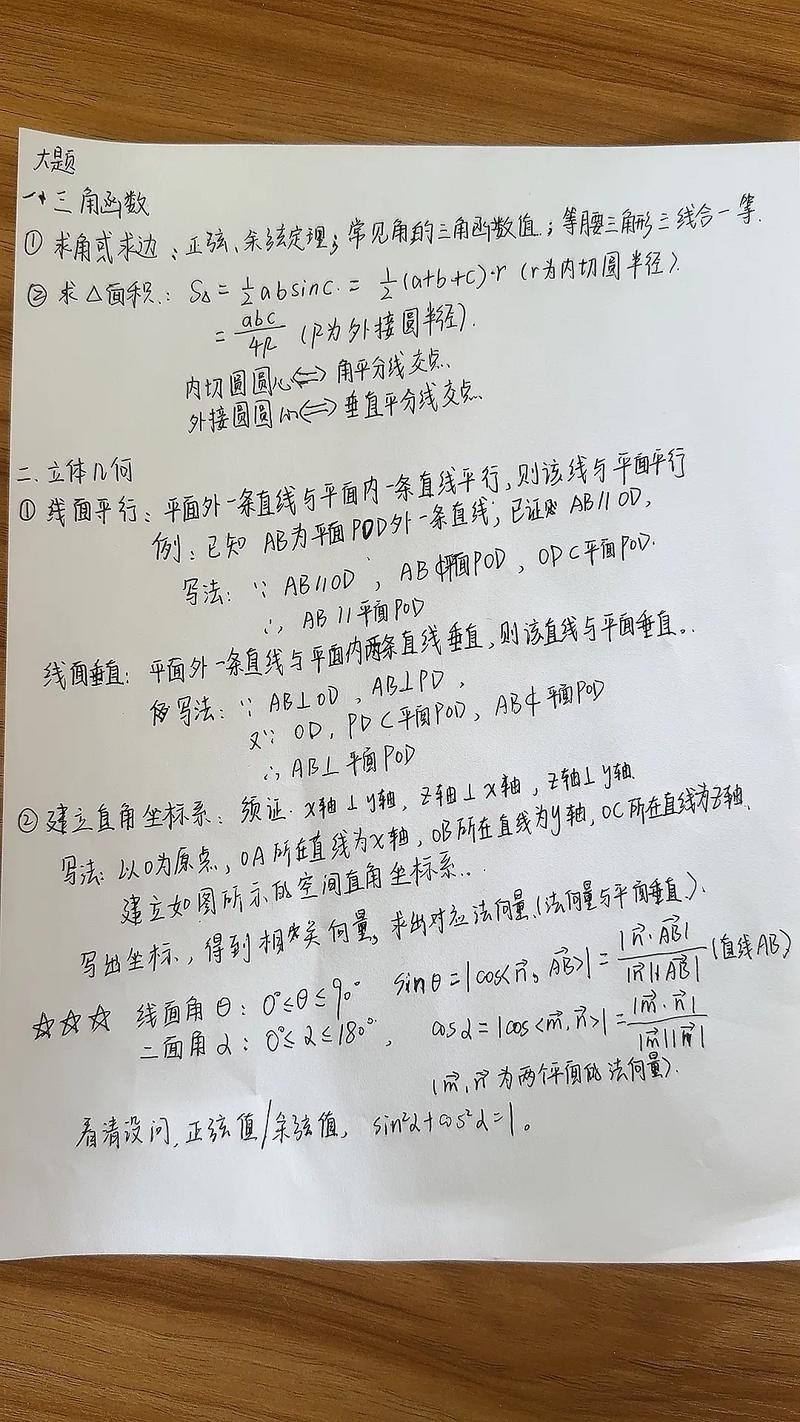 大题
一、三角函数
① 求角或求边：正弦、余弦定理；常见角的三角函数值；等腰三角形三线合一等.
② 求△面积：S△ = 1/2 absinC. = 1/2 (a+b+c)·r (r为内切圆半径).
= abc/4R (R为外接圆半径).
内切圆圆心⇔角平分线交点、
外接圆圆心⇔垂直平分线交点、
二、立体几何
① 线面平行：平面外一条直线与平面内一条直线平行，则该线与平面平行
例：已知 AB为平面POD外一条直线；已证 AB∥OD，
写法：∵ AB∥OD，AB⊄平面POD，OD⊂平面POD.
∴ AB∥平面POD
线面垂直：平面外一条直线与平面内两条直线垂直，则该直线与平面垂直。
写法：∵ AB⊥OD，AB⊥PD，
又∵ OD，PD⊂平面POD，AB⊄平面POD
∴ AB⊥平面POD
② 建立直角坐标系：须证. x轴⊥y轴，z轴⊥x轴，z轴⊥y轴.
写法：以O为原点，OA所在直线为x轴，OB所在直线为y轴，OC所在直线为z轴.
建立如图所示的空间直角坐标系..
写出坐标，得到相关向量。求出对应法向量.(法向量与平面垂直.).
☆☆☆ 线面角θ：0°≤θ≤90° sinθ=|cos<n⃗，AB⃗>|=|n⃗·AB⃗|/|n⃗||AB⃗| (直线AB)
二面角α：0°≤α≤180°， cosα=|cos<m⃗,n⃗>|=|m⃗·n⃗|/|m⃗||n⃗|
(m⃗,n⃗为两个平面的法向量).
看清设问，正弦值/余弦值， sin²α+cos²α=1。